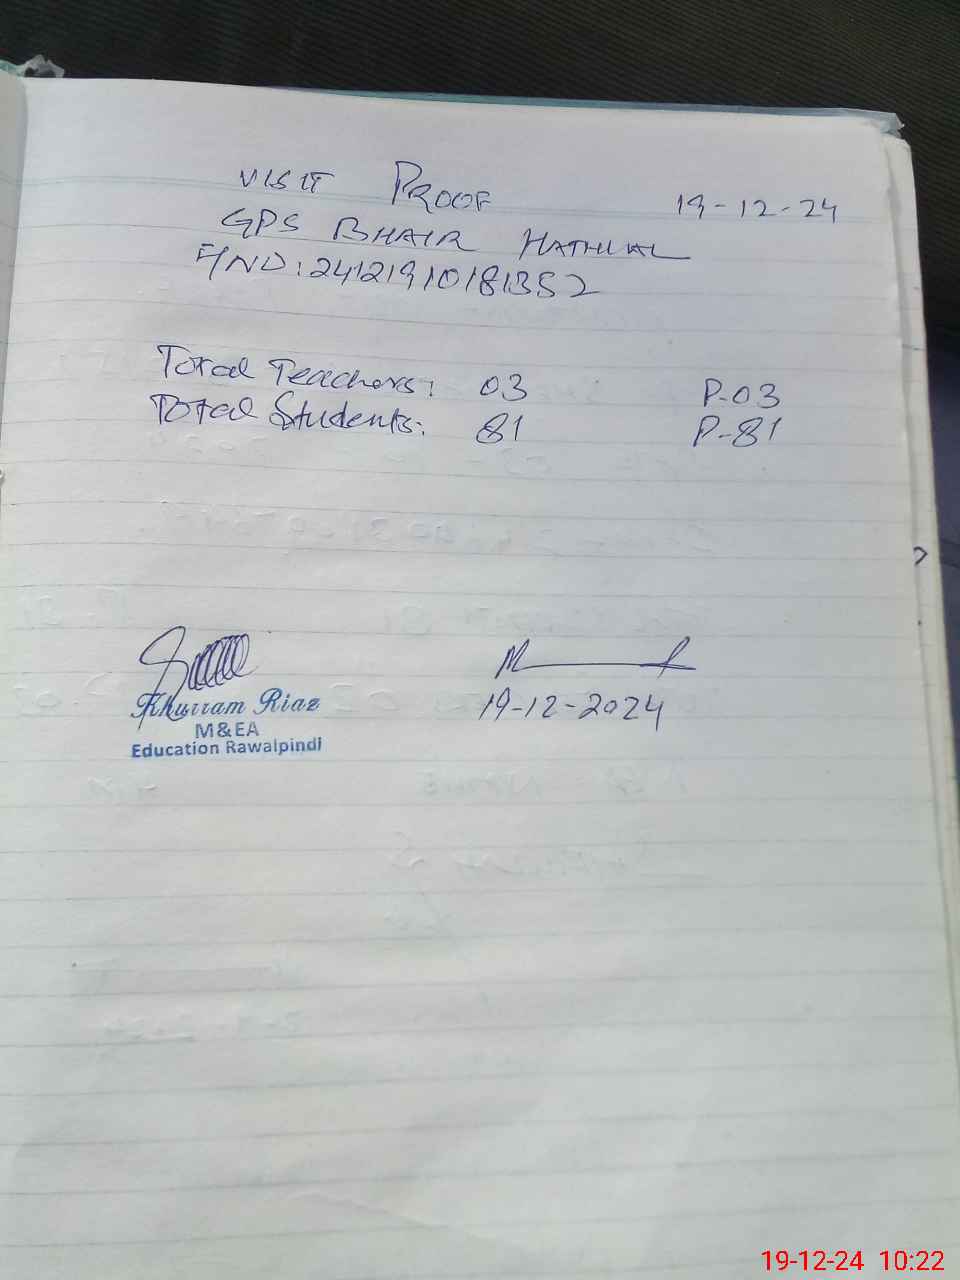 VISIT PROOF 19-12-24
GPS BHAIR HATHIAL
F/NO: 24121910181352
Total Teachers: 03 P-03
Total Students: 81 P-81
Khurram Riaz
M&EA
Education Rawalpindi
19-12-2024
19-12-24 10:22